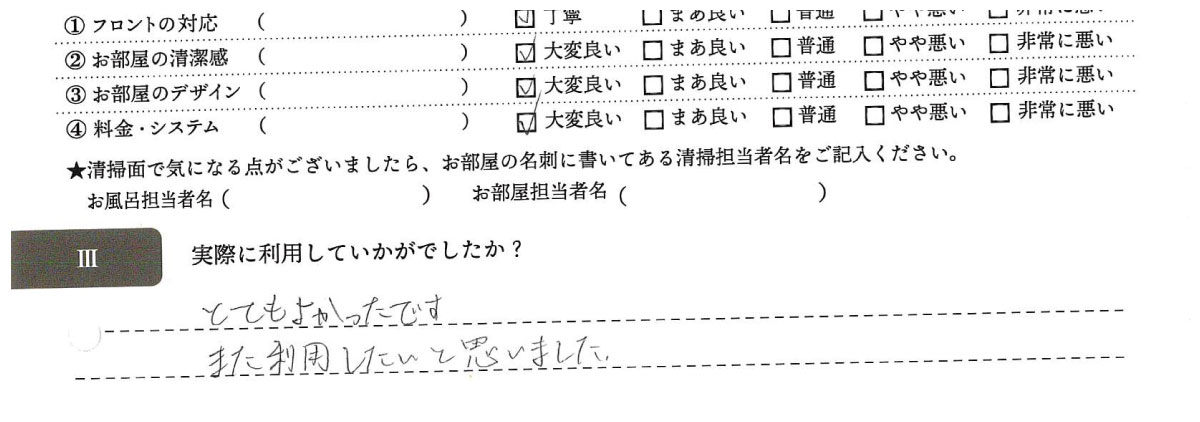 ① フロントの対応 ( ) ☑ 丁寧 □ まあ良い □ 普通 □ やや悪い □ 非常に悪い
② お部屋の清潔感 ( ) ☑ 大変良い □ まあ良い □ 普通 □ やや悪い □ 非常に悪い
③ お部屋のデザイン ( ) ☑ 大変良い □ まあ良い □ 普通 □ やや悪い □ 非常に悪い
④ 料金・システム ( ) ☑ 大変良い □ まあ良い □ 普通 □ やや悪い □ 非常に悪い
★清掃面で気になる点がございましたら、お部屋の名刺に書いてある清掃担当者名をご記入ください。
お風呂担当者名 ( ) お部屋担当者名 ( )
III 実際に利用していかがでしたか？
とてもよかったです
また利用したいと思いました.